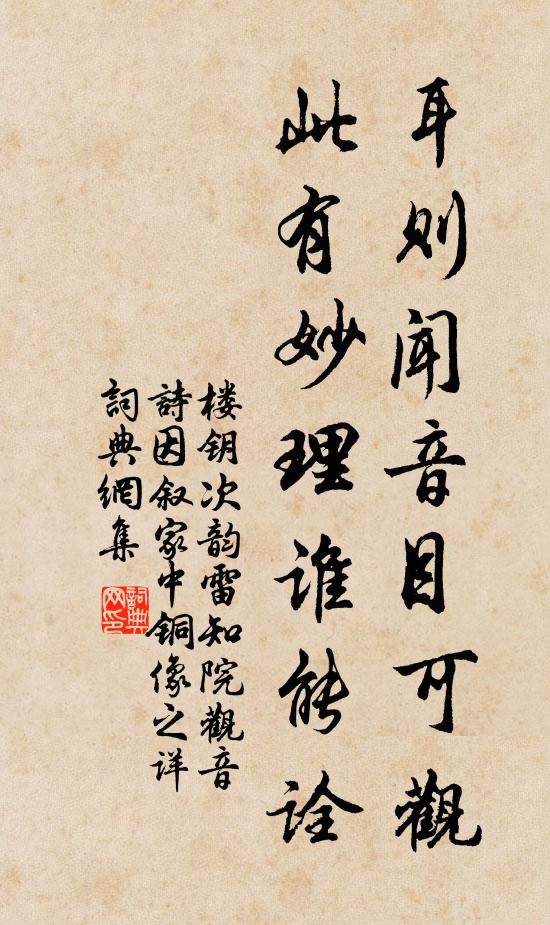 耳则闻音目可觀
此有妙理谁能诠
楼钥次韵雷知院觀音
詩因叙家中銅像之详
詞典網集
詞典网印